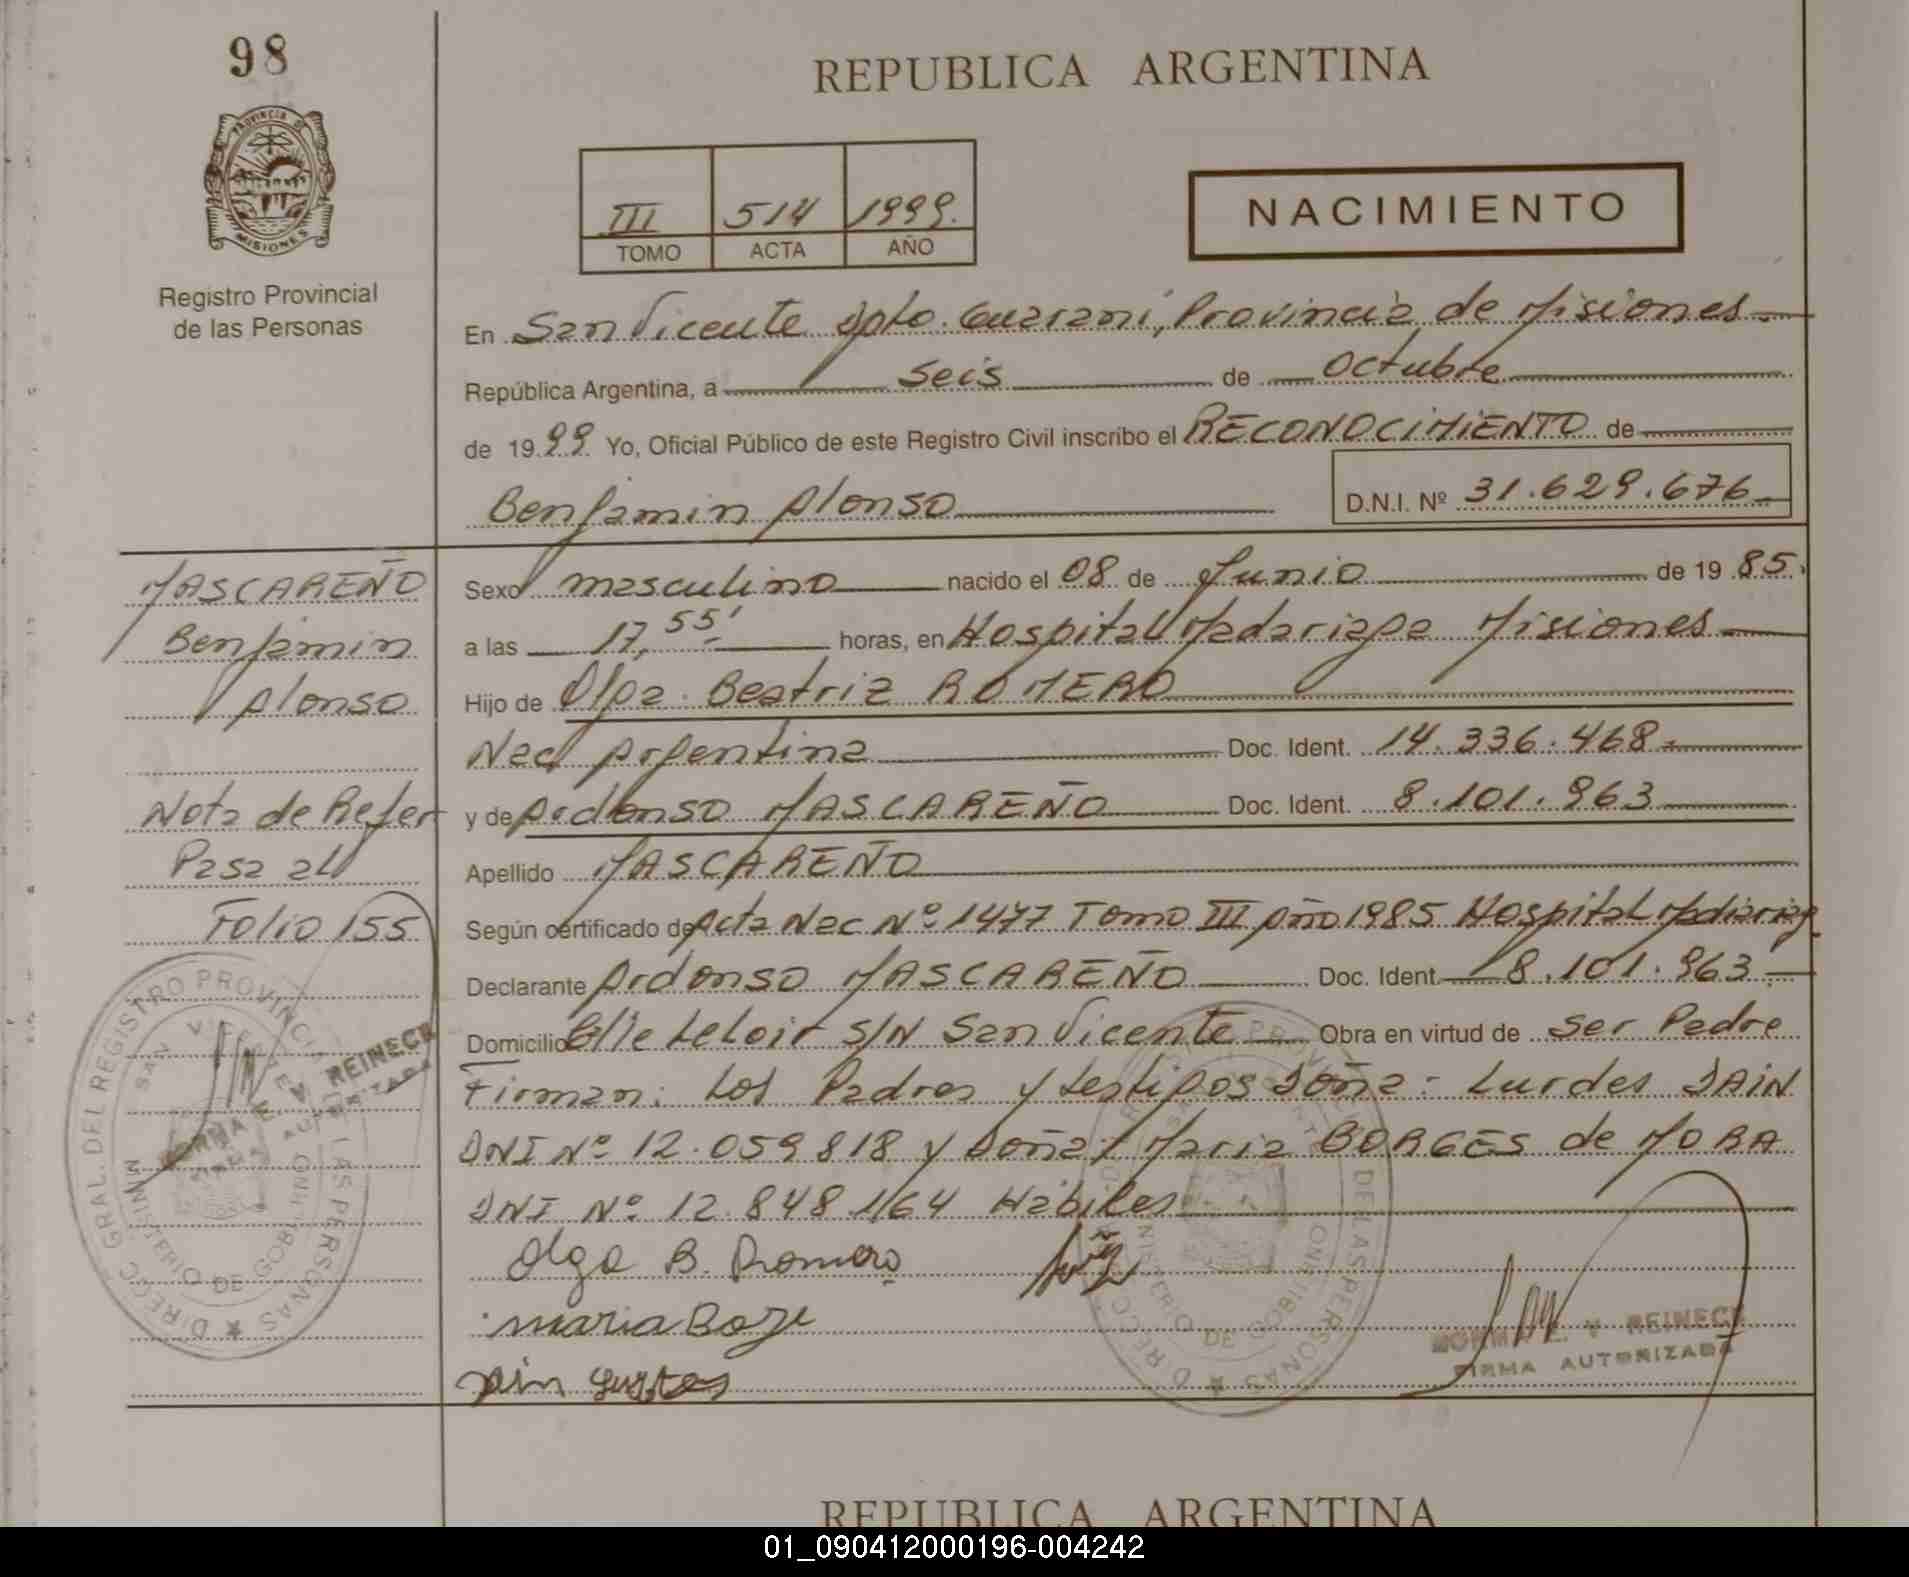 98
REPUBLICA ARGENTINA
PROVINCIA DE
MISIONES
Registro Provincial
de las Personas
III 514 1999.
TOMO ACTA AÑO
NACIMIENTO
En San Vicente Dpto. Guarani, Provincia de Misiones
República Argentina, a Seis de Octubre
de 1999 Yo, Oficial Público de este Registro Civil inscribo el RECONOCIMIENTO de
Benjamin Alonso D.N.I. Nº 31.629.676
MASCAREÑO
Benjamin
Alonso
Nota de Refer
Pasa al
Folio 155
Sexo masculino nacido el 08 de Junio de 1985.
a las 17,55' horas, en Hospital Madariaga Misiones
Hijo de Olga Beatriz ROMERO
Nac Argentina Doc. Ident. 14.336.468
y de Ardonso MASCAREÑO Doc. Ident. 8.101.963
Apellido MASCAREÑO
Según certificado de Acta Nac Nº 1477 Tomo III Año 1985 Hospital Madariaga
Declarante Ardonso MASCAREÑO Doc. Ident 8.101.963
Domicilio Clle Leloir S/N San Vicente Obra en virtud de Ser Padre
Firman: Los Padres y testigos Doña: Lurdes DAIN
DNI Nº 12.059818 y Doña: Maria BORGES de MORA
DNI Nº 12.848.164 Habiles
Olga B. Romero
maria Borje
NORMA E. V REINECK
FIRMA AUTORIZADA
DIRECC GRAL. DEL REGISTRO PROVINCIAL DE LAS PERSONAS
SAN VICENTE
MINISTERIO DE GOBIERNO
NORMA E. V REINECK
FIRMA AUTORIZADA
REPUBLICA ARGENTINA
01_090412000196-004242